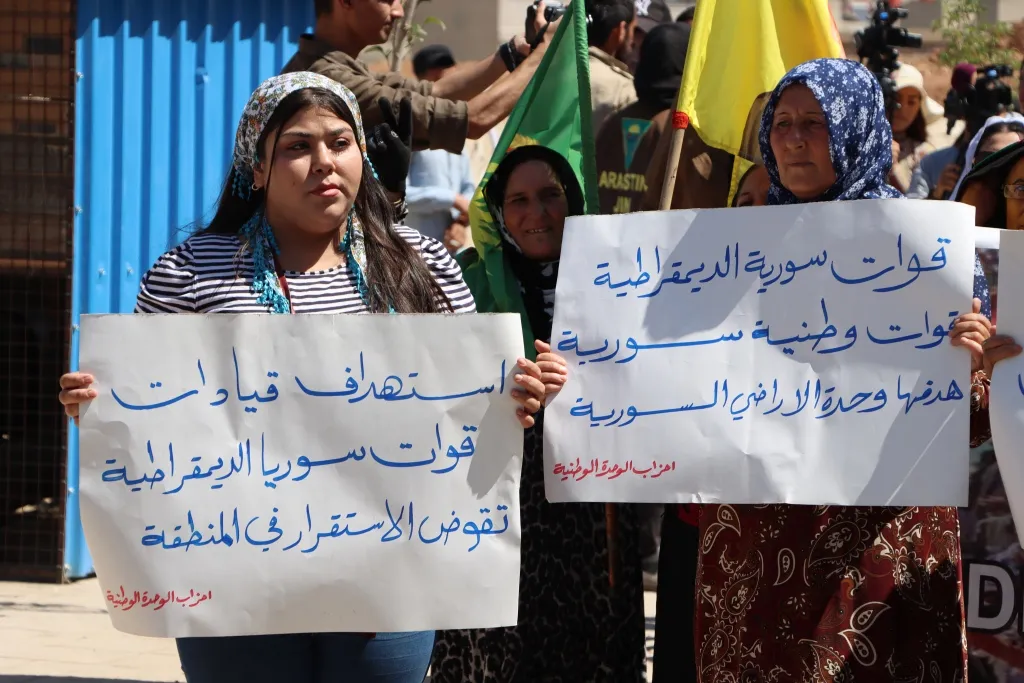 استهداف قيادات
قوات سوريا الديمقراطية
تقوض الاستقرار في المنطقة
احزاب الوحدة الوطنية
قوات سورية الديمقراطية
قوات وطنية سورية
هدفها وحدة الاراضي السورية
احزاب الوحدة الوطنية
PARASTIN
JIN
D